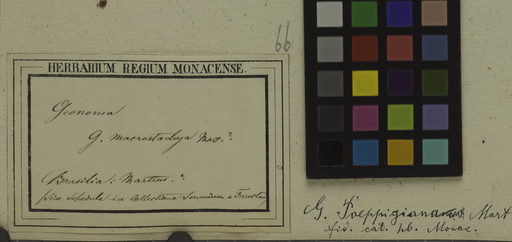 66
HERBARIUM REGIUM MONACENSE.
Geonoma
G. macrostachya Mart.?
Brasilia: Martius.?
(sine schedula in Collectione Seminum & Fructuum
G. Poeppigiana Mart
fid. cat. hb. Monac.